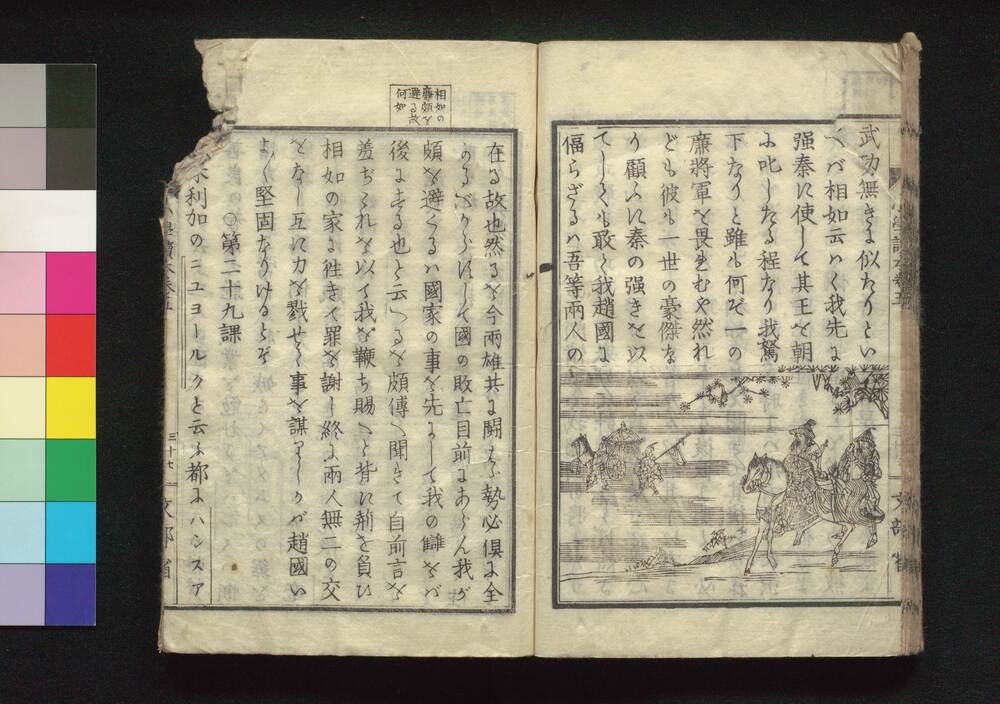 武功無きよ似たりとい
へバ相如云ハく我先よ
强秦に使して其王を朝
ふ叱したる程なり我駑
下なりと雖も何ぞ一の
廉將軍を畏れむや然れ
ども彼も一世の豪傑な
り顧ふに秦の强きを以
てしても敢て我趙國よ
偪らざるハ吾等兩人の
相如の
廉頗を
避る故
何如
在る故也然るを今兩雄共よ鬪はゞ勢必俱よ全
のるべからずして國の敗亡目前よあらん我が
頗を避くるハ國家の事を先よして我の讎をバ
後にする也と云へるを頗傳へ聞きて自前言を
羞ぢくれを以て我を鞭ち賜へと背に荊を負ひ
相如の家よ徃きて罪を謝し終よ兩人無二の交
をなし互に力を戮せて事を謀りしかバ趙國い
よく堅固なりけるとぞ
○第二十九課
利加のニユヨールクと云ふ都ふハンスア
三十七
文部省